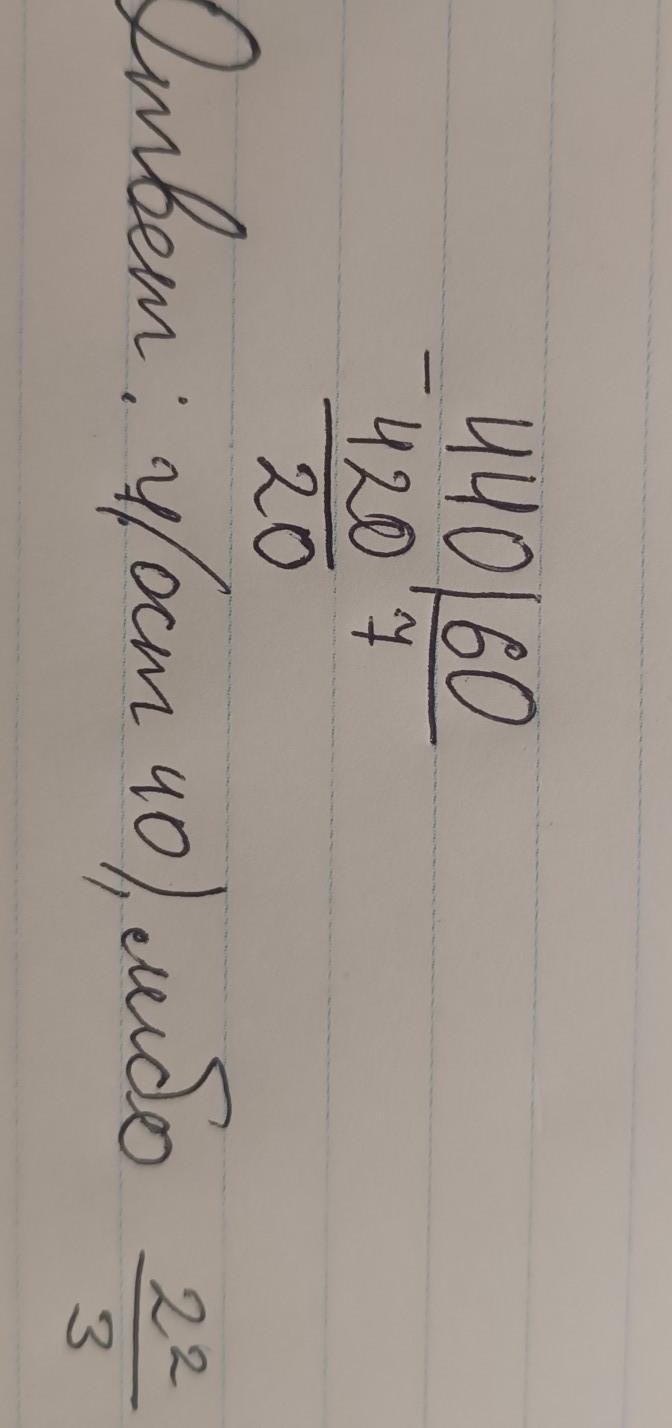 440|60
- 420 7
20
Ответ: 7(ост 40), либо 22/3